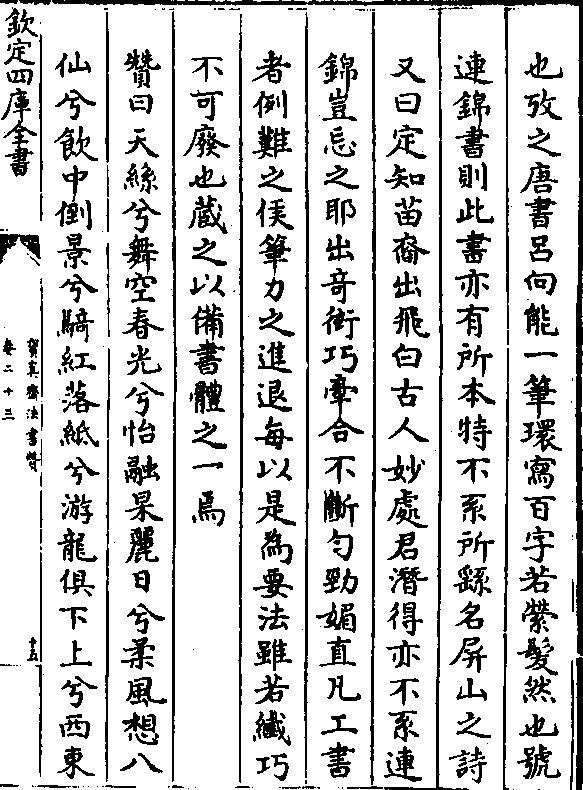 也攷之唐書呂向能一筆環寫百字若縈髮然也號
連錦書則此書亦有所本特不系所繇名屏山之詩
又曰定知苗裔出飛白古人妙處君潛得亦不系連
錦豈忘之耶出奇衒巧牽合不斷勻勁媚直凡工書
者例難之俟筆力之進退每以是為要法雖若纖巧
不可廢也蔵之以備書體之一焉
贊曰天絲兮舞空春光兮怡融杲麗日兮柔風想八
仙兮飲中倒景兮騎紅落紙兮游龍俱下上兮西東
欽定四庫全書
寶真齋法書贊
卷二十三
十五